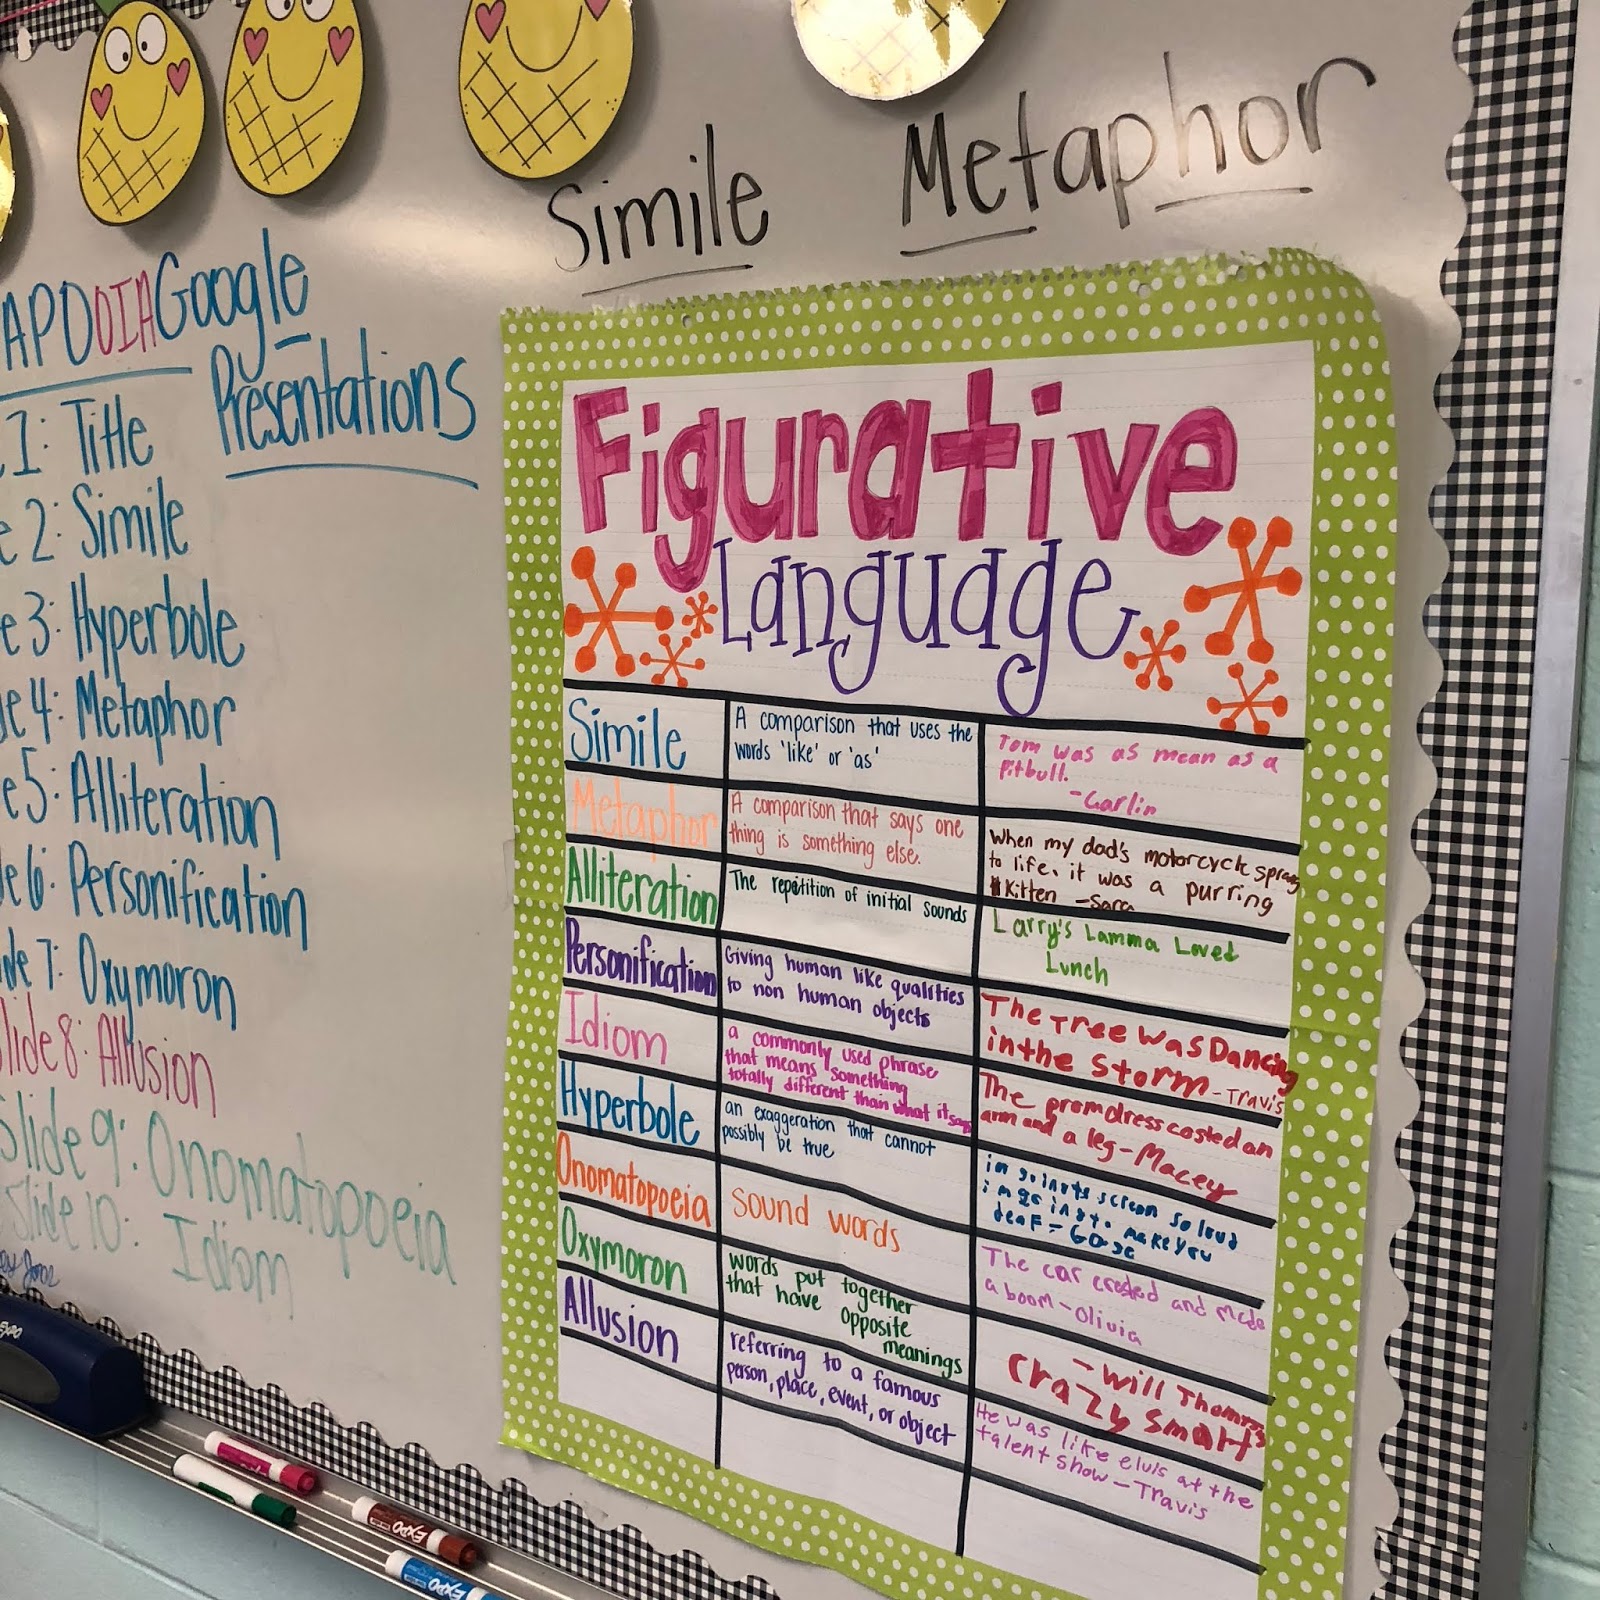 Simile Metaphor
APOOIA Google
Presentations
1: Title
e 2: Simile
e 3: Hyperbole
de 4: Metaphor
e 5: Alliteration
de 6: Personification
ide 7: Oxymoron
Slide 8: Allusion
Slide 9: Onomatopoeia
Slide 10: Idiom
Figurative
Language
Simile
A comparison that uses the
words 'like' or 'as'
Tom was as mean as a
Pitbull.
-Carlin
Metaphor
A comparison that says one
thing is something else.
When my dad's motorcycle sprang
to life, it was a purring
Kitten -Sara
Alliteration
The repitition of initial sounds
Larry's Lamma Loved
Lunch
Personification
Giving human like qualities
to non human objects
The Tree Was Dancing
in the Storm - Travis
Idiom
a commonly used phrase
that means something
totally different than what it says
The prom dress costed an
arm and a leg - Macey
Hyperbole
an exaggeration that cannot
possibly be true
scream so loud
make you
deaf -
Onomatopoeia
Sound words
The car crashed and made
a boom - Olivia
Oxymoron
words put together
that have opposite
meanings
- Will Thomas
Crazy Smart
Allusion
referring to a famous
person, place, event, or object
He was like elvis at the
talent show - Travis
EXPO
EXPO
EXPO